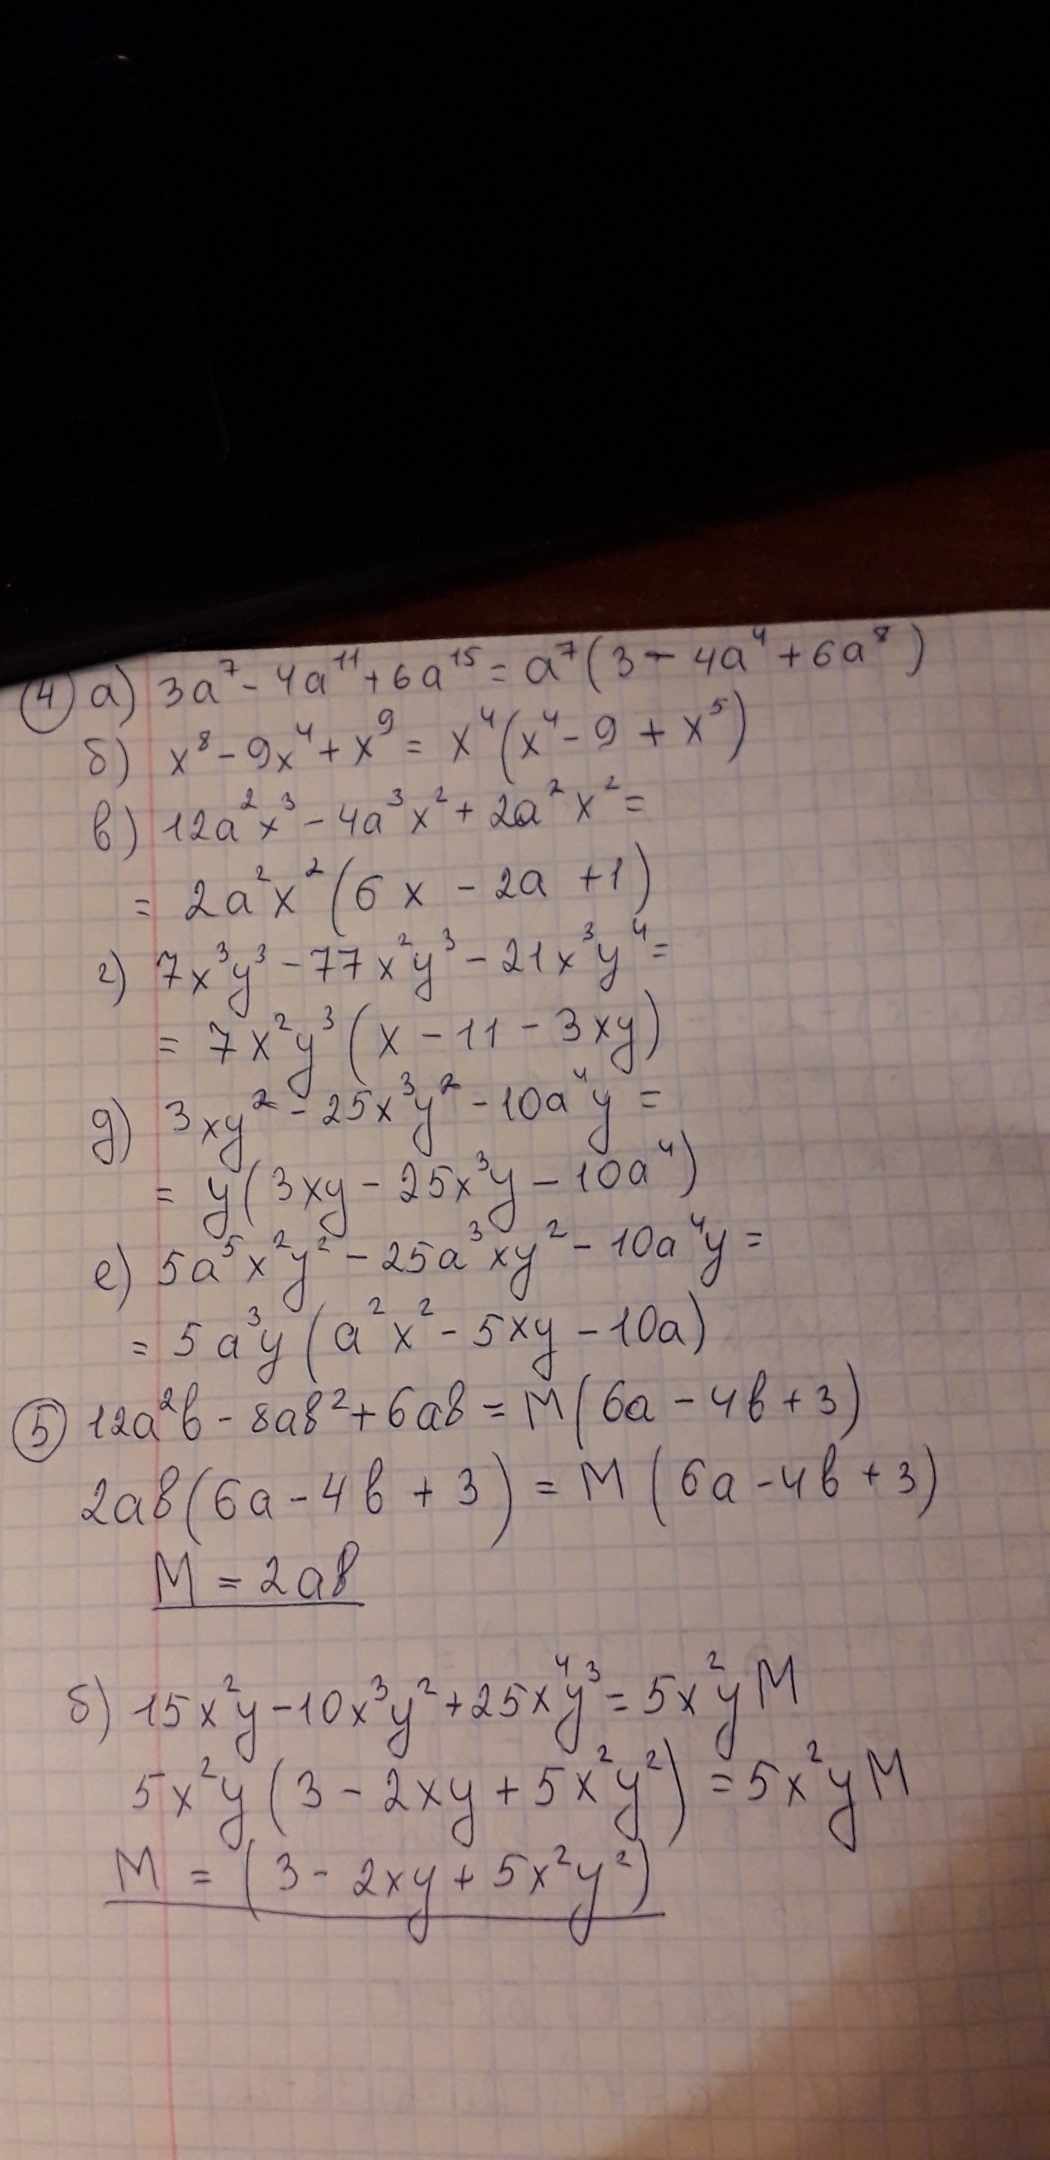 ④ а) 3a⁷ - 4a¹¹ + 6a¹⁵ = a⁷(3 - 4a⁴ + 6a⁸)
б) x⁸ - 9x⁴ + x⁹ = x⁴(x⁴ - 9 + x⁵)
в) 12a²x³ - 4a³x² + 2a²x² =
= 2a²x²(6x - 2a + 1)
г) 7x³y³ - 77x²y³ - 21x³y⁴ =
= 7x²y³(x - 11 - 3xy)
д) 3xy² - 25x³y² - 10a⁴y =
= y(3xy - 25x³y - 10a⁴)
е) 5a⁵x²y² - 25a³xy² - 10a⁴y =
= 5a³y(a²x² - 5xy - 10a)
⑤ 12a²b - 8ab² + 6ab = M(6a - 4b + 3)
2ab(6a - 4b + 3) = M(6a - 4b + 3)
M = 2ab
б) 15x²y - 10x³y² + 25x⁴y³ = 5x²yM
5x²y(3 - 2xy + 5x²y²) = 5x²yM
M = (3 - 2xy + 5x²y²)